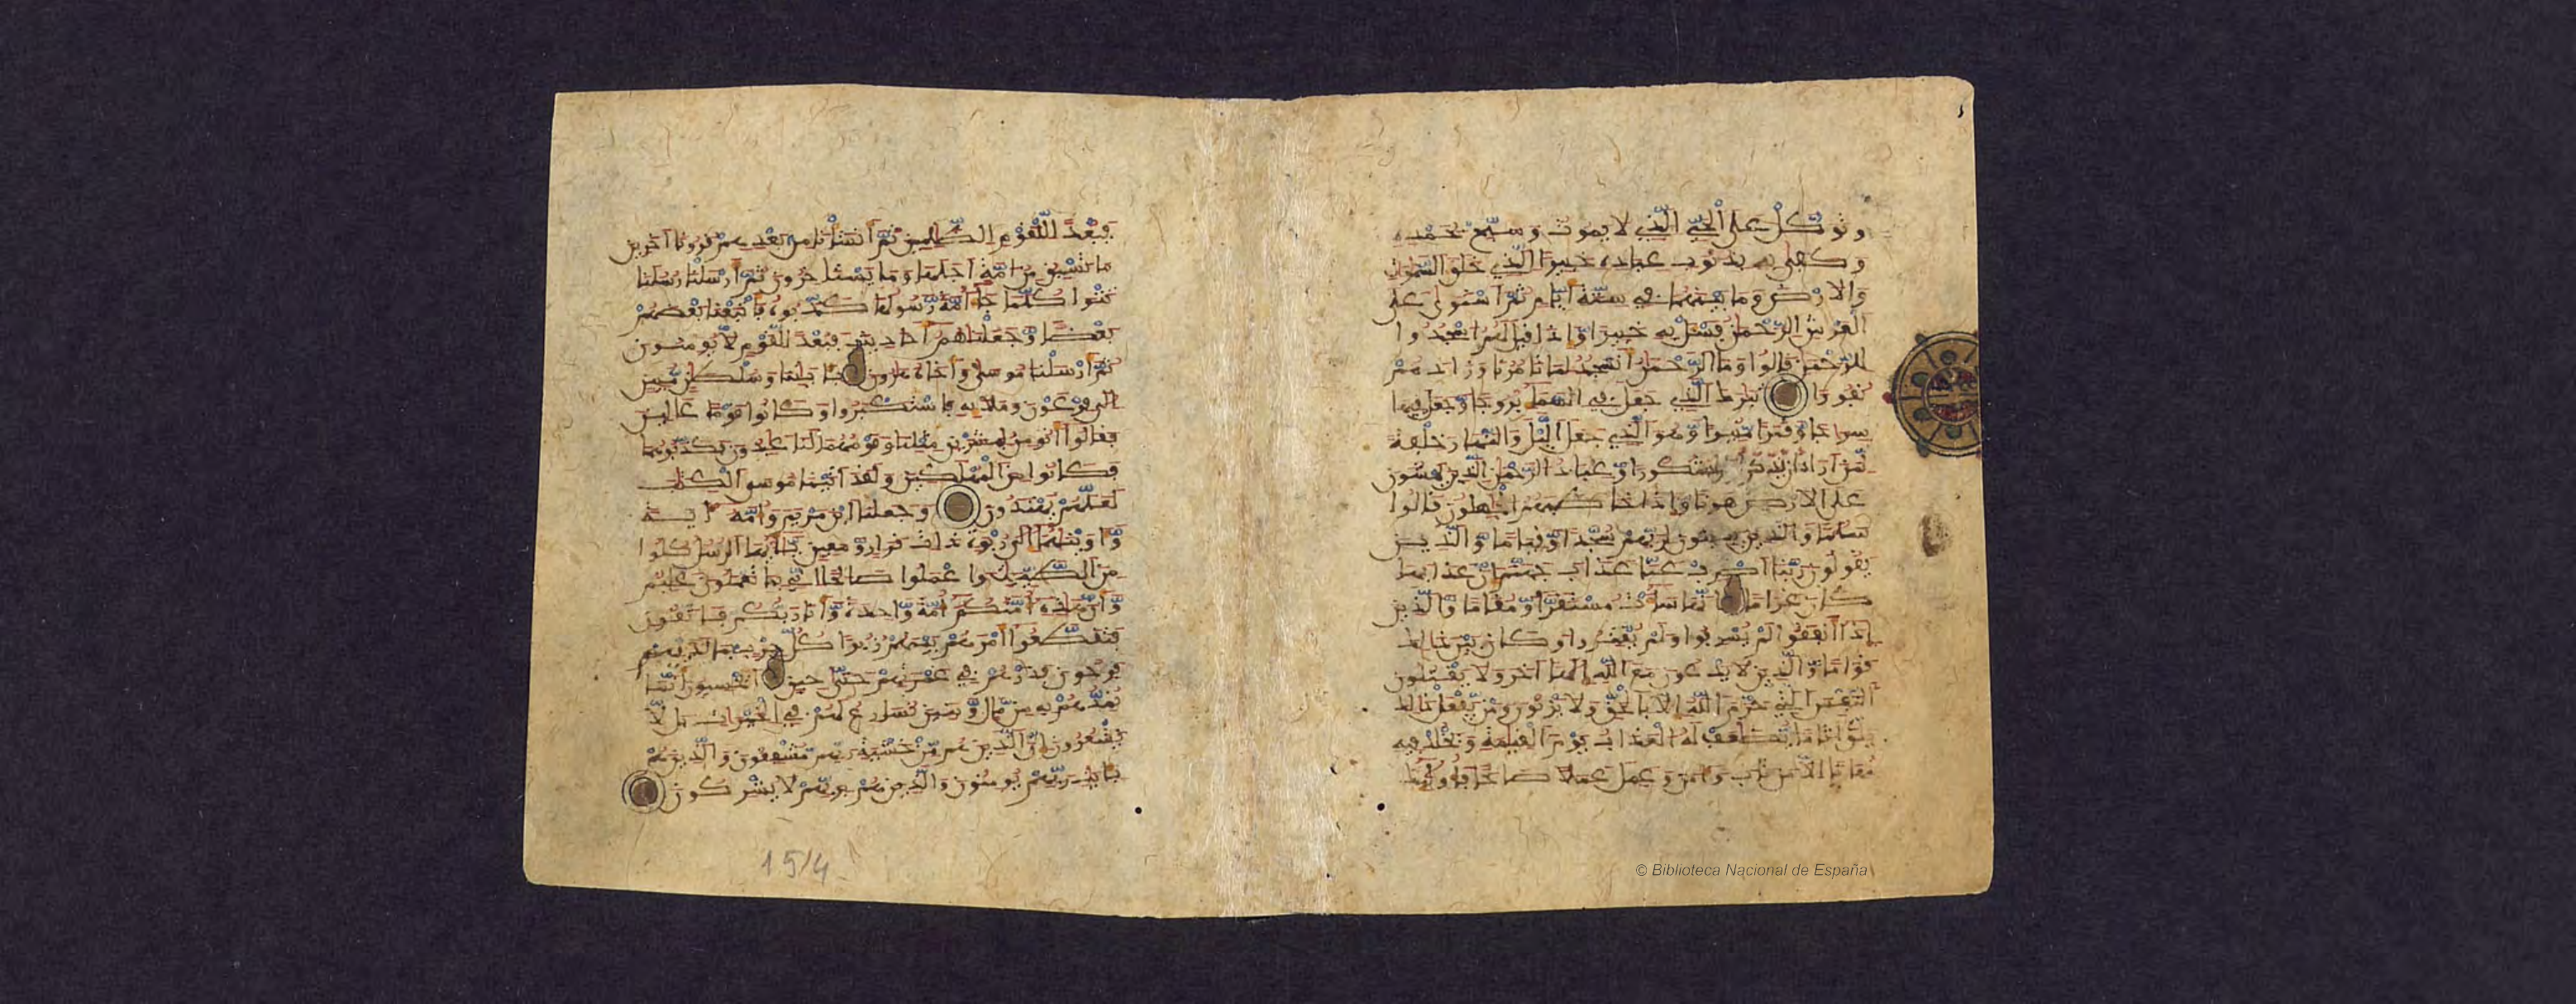 وتوكل على الحي الذي لا يموت وسبح بحمده
وكفى به بذنوب عباده خبيرا الذي خلق السموت
والارض وما بينهما في ستة ايام ثم استوى على
العرش الرحمن فسل به خبيرا واذا قيل لهم اسجدوا
للرحمن قالوا وما الرحمن انسجد لما تامرنا وزادهم
نفورا تبرك الذي جعل في السما بروجا وجعل فيها
سراجا وقمرا منيرا وهو الذي جعل اليل والنهار خلفة
لمن اراد ان يذكر او اراد شكورا وعباد الرحمن الذين يمشون
على الارض هونا واذا خاطبهم الجهلون قالوا
سلما والذين يبيتون لربهم سجدا وقيما والذين
يقولون ربنا اصرف عنا عذاب جهنم ان عذابها
كان غراما انها سات مستقرا ومقاما والذين
اذا انفقوا لم يسرفوا ولم يقتروا وكان بين ذلك
قواما والذين لا يدعون مع الله الها اخر ولا يقتلون
النفس التي حرم الله الا بالحق ولا يزنون ومن يفعل ذلك
يلق اثاما يضاعف له العذاب يوم القيمة ويخلد فيه
مهانا الا من تاب وامن وعمل عملا صالحا فاولئك
فبعدا للقوم الظلمين ثم انشانا من بعدهم قرونا اخرين
ما تسبق من امة اجلها وما يستاخرون ثم ارسلنا رسلنا
تترا كلما جا امة رسولها كذبوه فاتبعنا بعضهم
بعضا وجعلناهم احاديث فبعدا لقوم لا يومنون
ثم ارسلنا موسى واخاه هرون بايتنا وسلطن مبين
الى فرعون وملايه فاستكبروا وكانوا قوما عالين
فقالوا انومن لبشرين مثلنا وقومهما لنا عبدون فكذبوهما
فكانوا من المهلكين ولقد اتينا موسى الكتب
لعلهم يهتدون وجعلنا ابن مريم وامه اية
واوينهما الى ربوة ذات قرار ومعين يايها الرسل كلوا
من الطيبت واعملوا صالحا اني بما تعملون عليم
وان هذه امتكم امة واحدة وانا ربكم فاتقون
فتقطعوا امرهم بينهم زبرا كل حزب بما لديهم
فرحون فذرهم في غمرتهم حتى حين ايحسبون انما
نمدهم به من مال وبنين نسارع لهم في الخيرات بل لا
يشعرون ان الذين هم من خشية ربهم مشفقون والذين هم
بايت ربهم يومنون والذين هم بربهم لا يشركون
15/4
© Biblioteca Nacional de España